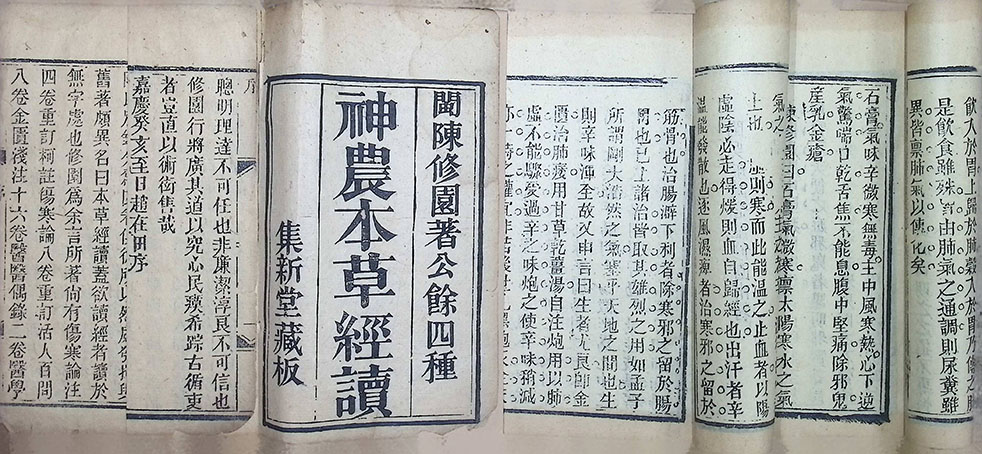 飲入於胃上歸於肺穀入於胃乃傳之肺
是飲食雖殊皆由肺氣之通調則尿糞雖
異皆禀肺氣以傳化矣
石膏氣味辛微寒無毒主中風寒熱心下逆
氣驚喘口乾舌焦不能息腹中堅痛除邪鬼
產乳金瘡
陳修園曰石膏氣微寒禀太陽寒水之氣
氣之
上也
則寒而此能溫之止血者以陽
虛陰必走得煖則血自歸經也出汗者辛
溫能發散也逐風濕痺者治寒邪之留於
筋骨也治腸澼下利者除寒邪之留於腸
間也已上諸治皆取其雄烈之用如孟子
所謂剛大浩然之氣塞乎天地之間也生
則辛味渾全故又申言曰生者尤良即金
匱治肺痿用甘草乾薑湯自注炮用以肺
虛不能驟受過辛之味炮之使辛味稍減
亦一時之權宜非若後世
閩陳修園著公餘四種
神農本草經讀
集新堂藏板
序
聰明理達不可任也非廉潔淳良不可信也
修園行將廣其道以究心民瘼希踪古循吏
者豈直以術衒售哉
嘉慶癸亥至日趙在田序
舊著頗異名曰本草經讀蓋欲讀經者讀於
無字處也修園為余言所著尚有傷寒論注
四卷重訂柯註傷寒論八卷重訂活人百問
八卷金匱淺注十六卷醫醫偶錄二卷醫學